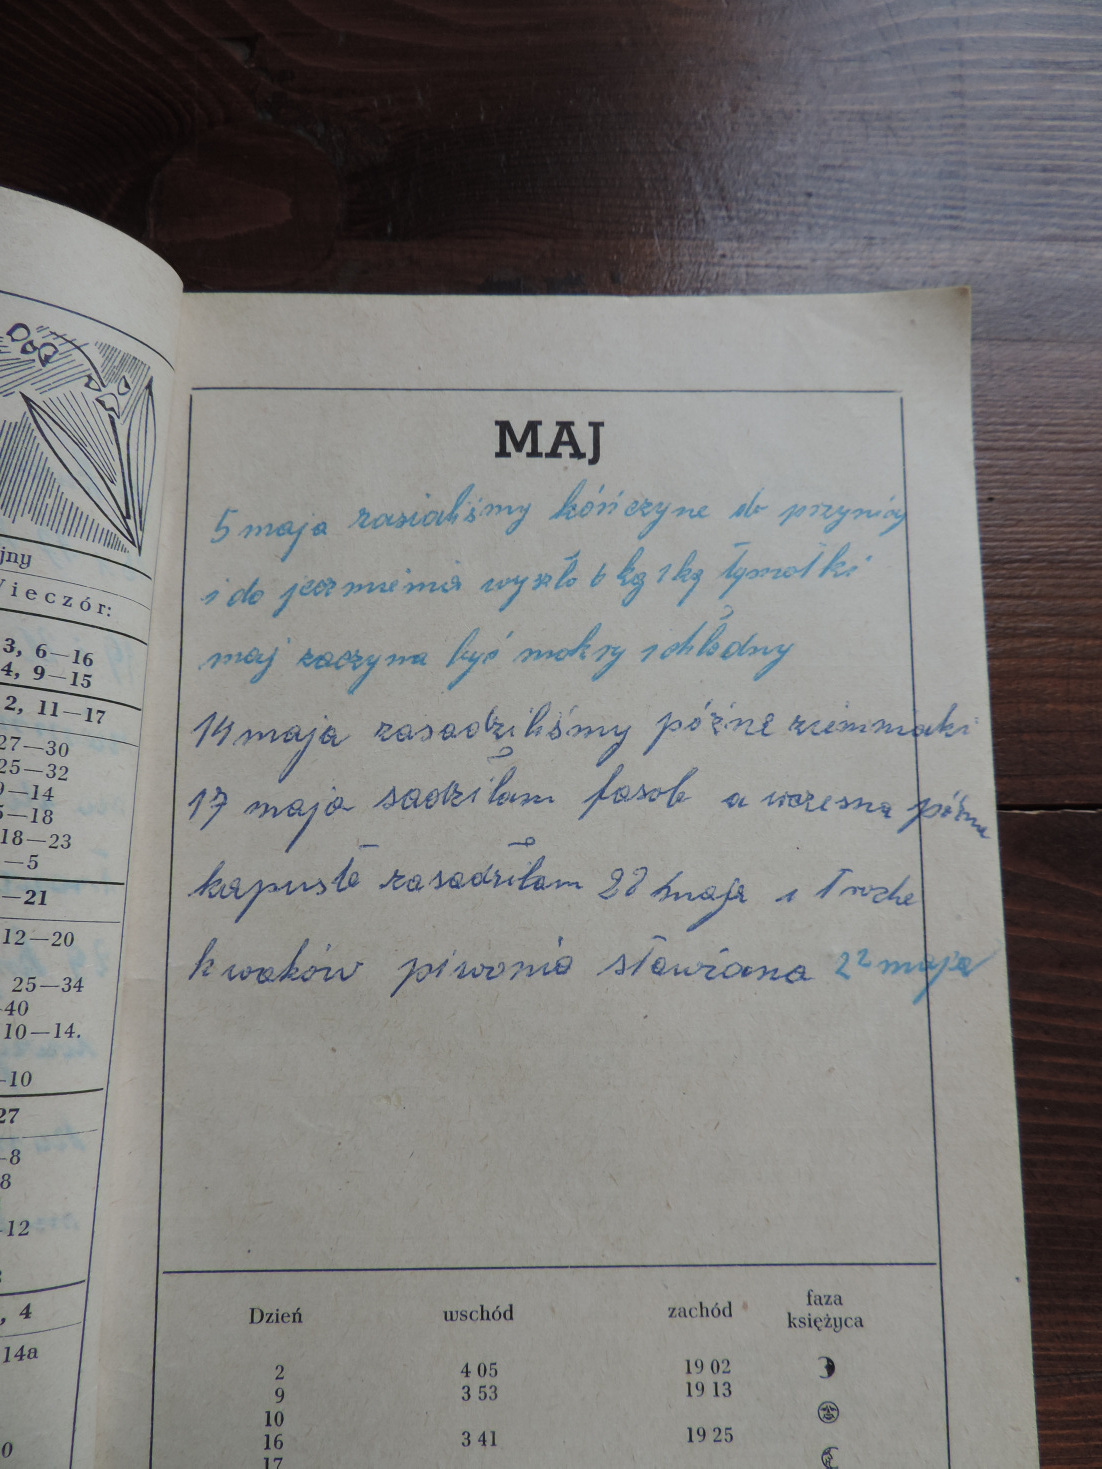 jny
Wieczór:
3, 6—16
4, 9—15
2, 11—17
27—30
25—32
9—14
5—18
18—23
—5
—21
12—20
25—34
40
10—14.
—10
27
—8
8
—12
, 4
14a
0
MAJ
5 maja zasialiśmy kończyne do przynicy
i do jeczmienia wyszło 6 kg 1 kg tymotki
maj zaczyna być mokry i chłodny
14 maja zasadziliśmy późne ziemniaki
17 maja sadziłam fasole a wczesna późna
kapuste zasadziłam 22 maja i troche
kwiaków piwonia stawiana 22 maja
Dzień wschód zachód faza księżyca
2 4 05 19 02
9 3 53 19 13
10
16 3 41 19 25
17